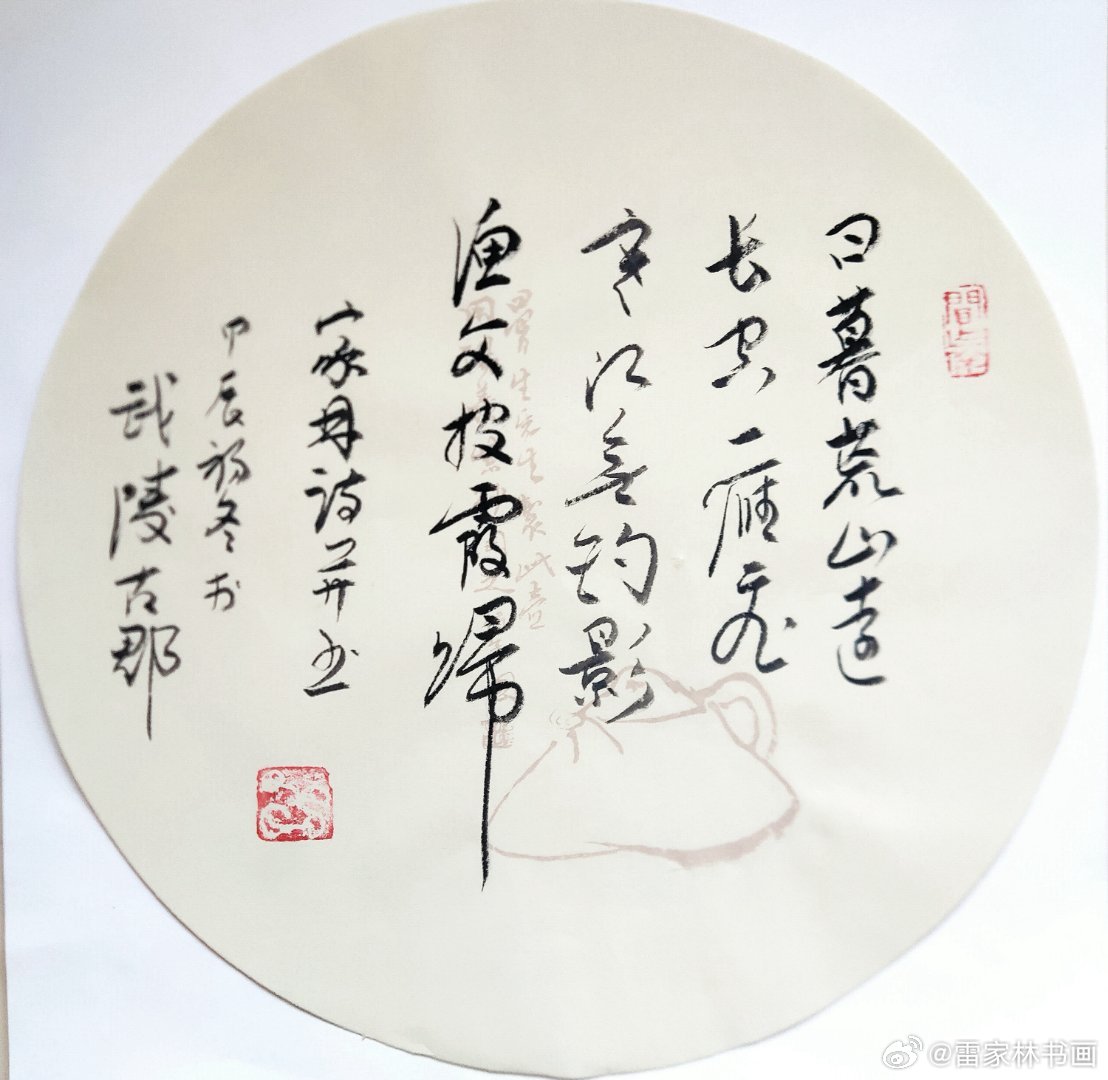 日暮荒山远
长空一雁飞
寒江无钓影
渔父披霞归
家林诗并书
甲辰初冬于
武陵古郡
@雷家林书画